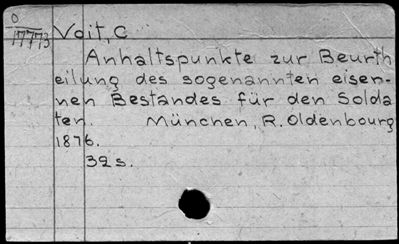 0
17773
Voit, C
Anhaltspunkte zur Beurth
eilung des sogenannten eiser-
nen Bestandes für den Solda
ten. München, R. Oldenbourg
1876.
32 s.